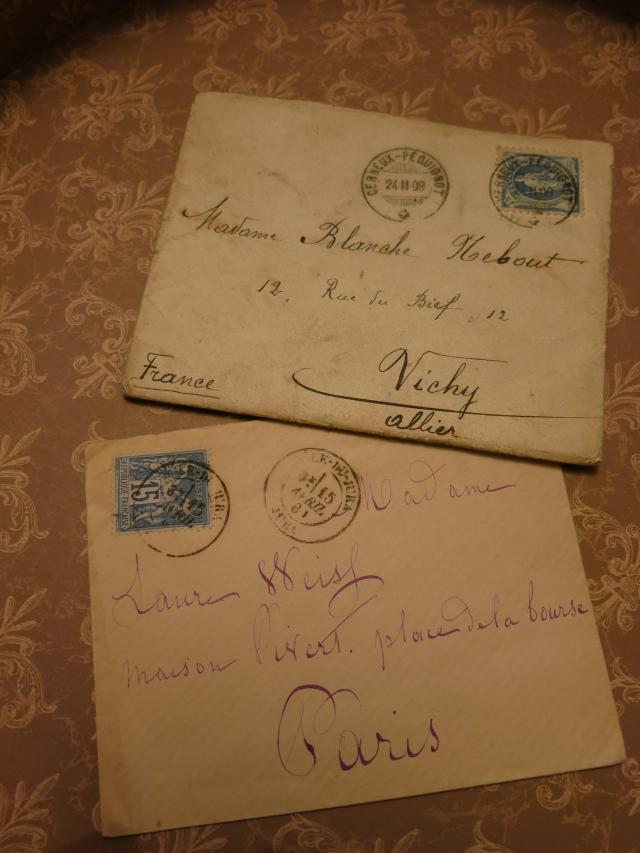 CERNEUX-PÉQUIGNOT
24 II 09
Madame Blanche Nebout
12, Rue du Bief, 12
Vichy
Allier
France
15
LE-DU-JURA
15
AVRIL
81
JURA
Madame
Laure Weisf
maison Vivert. place de la bourse
Paris